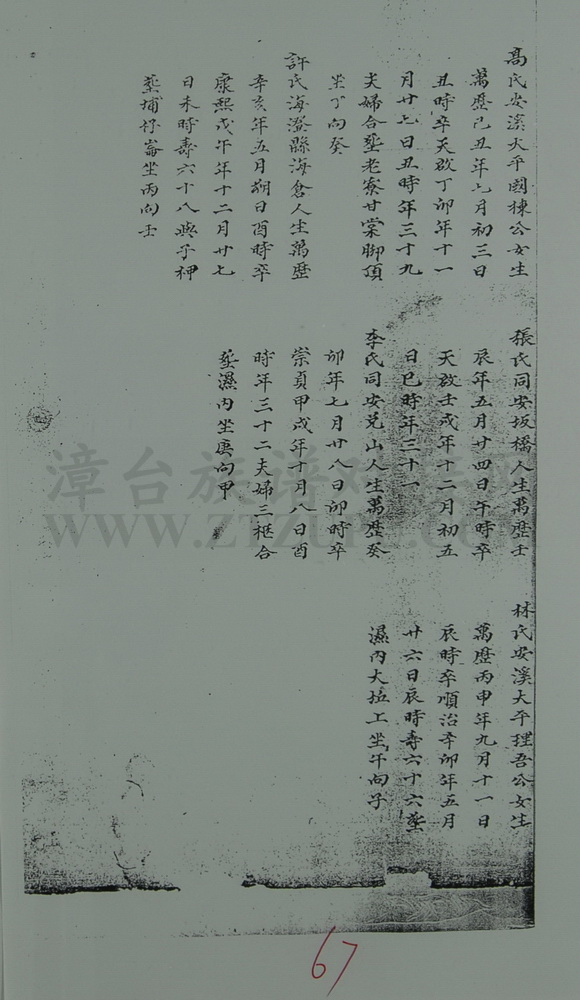 高氏安溪大平國棟公女生
萬歷己丑年七月初三日
丑時卒天啟丁卯年十一
月廿七日丑時年三十九
夫婦合塟老寮甘棠脚頂
坐丁向癸
許氏海澄縣海倉人生萬歷
辛亥年五月朔日酉時卒
康熙戊午年十二月廿七
日未時壽六十八與子神
塟埔仔崙坐丙向壬
張氏同安坂橋人生萬歷壬
辰年五月廿四日午時卒
天啟壬戌年十二月初五
日巳時年三十一
李氏同安兌山人生萬歷癸
卯年七月廿八日卯時卒
崇貞甲戌年十月八日酉
時年三十二夫婦三柩合
塟濕內坐庚向甲
林氏安溪大平理吾公女生
萬歷丙申年九月十一日
辰時卒順治辛卯年五月
廿六日辰時壽六十六塟
濕內大坵工坐午向子
漳台族谱对接网
WWW.ZTZUPU.COM
67